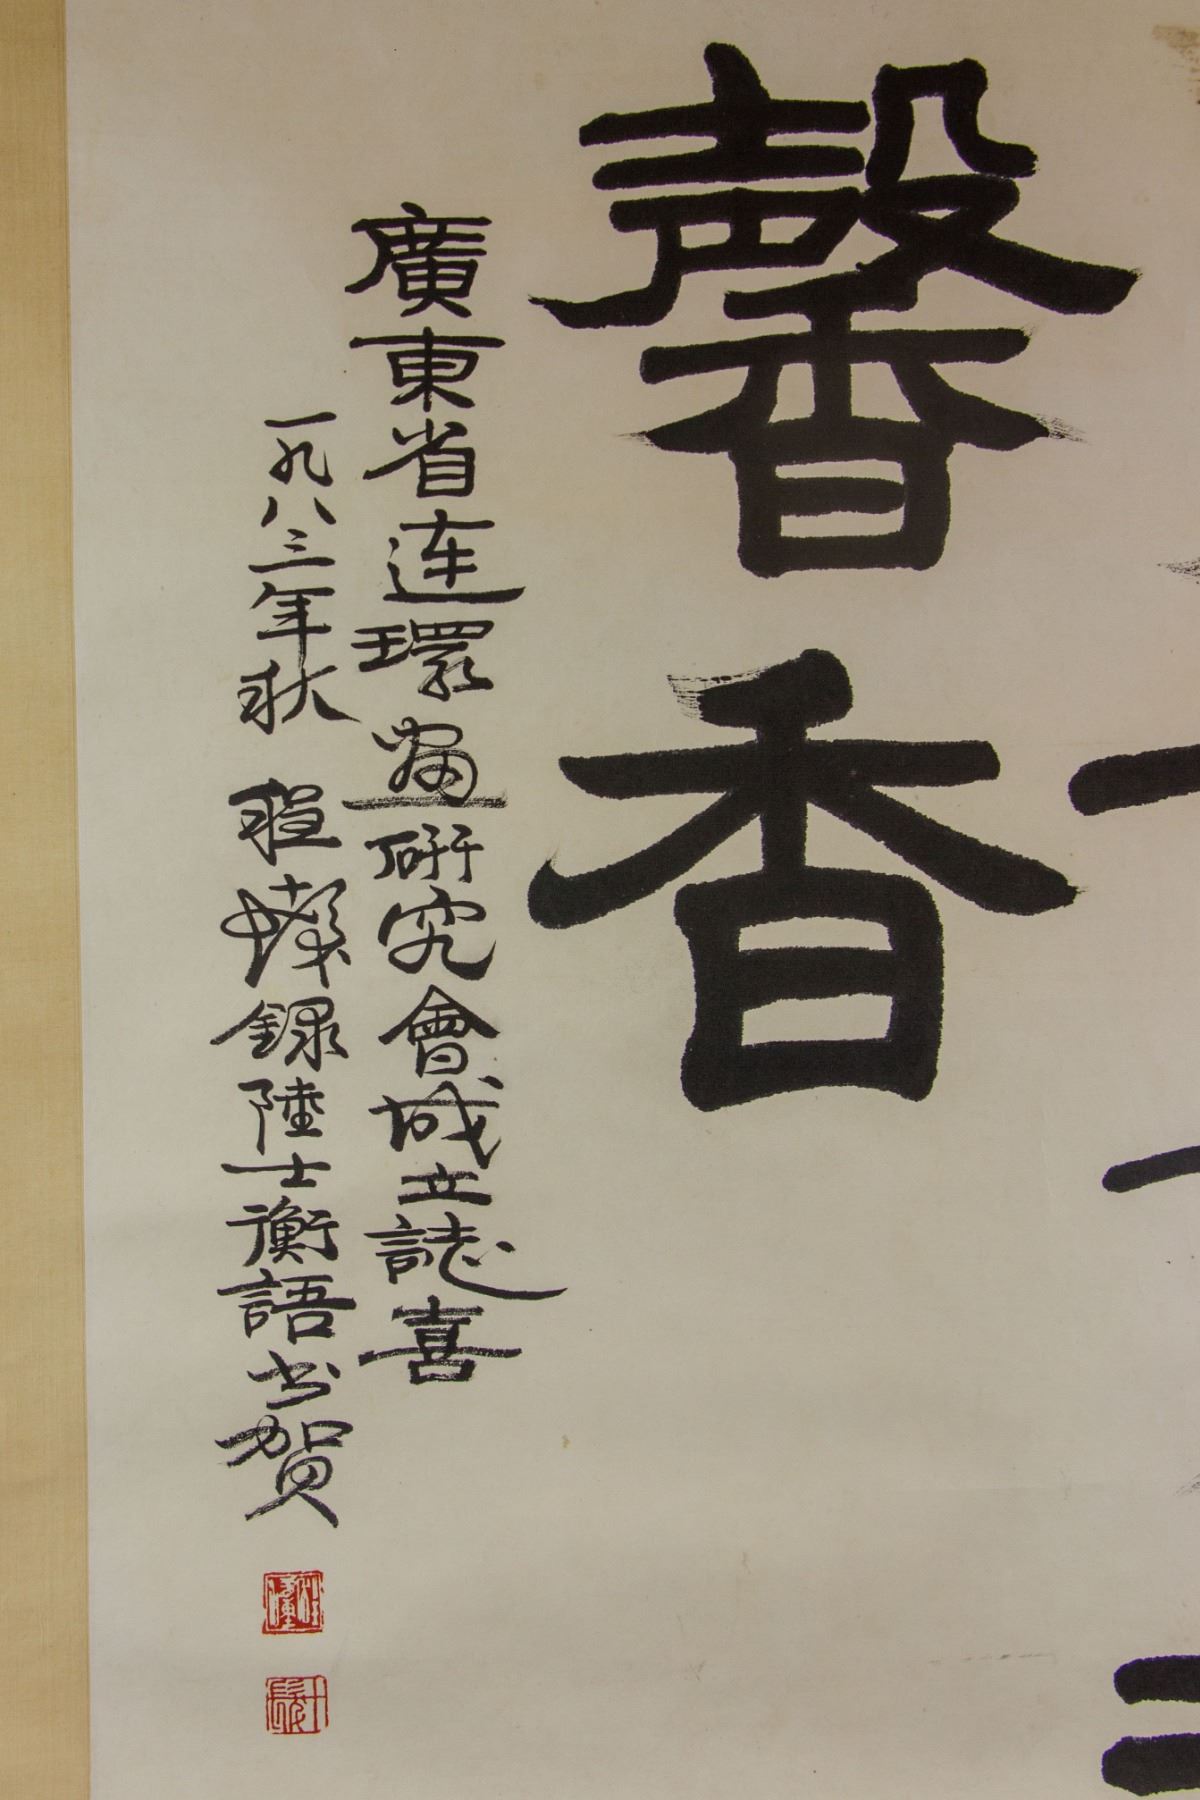 馨香
廣東省连環畫研究會成立誌喜
一九八三年秋 程十髮録陸士衡語书贺